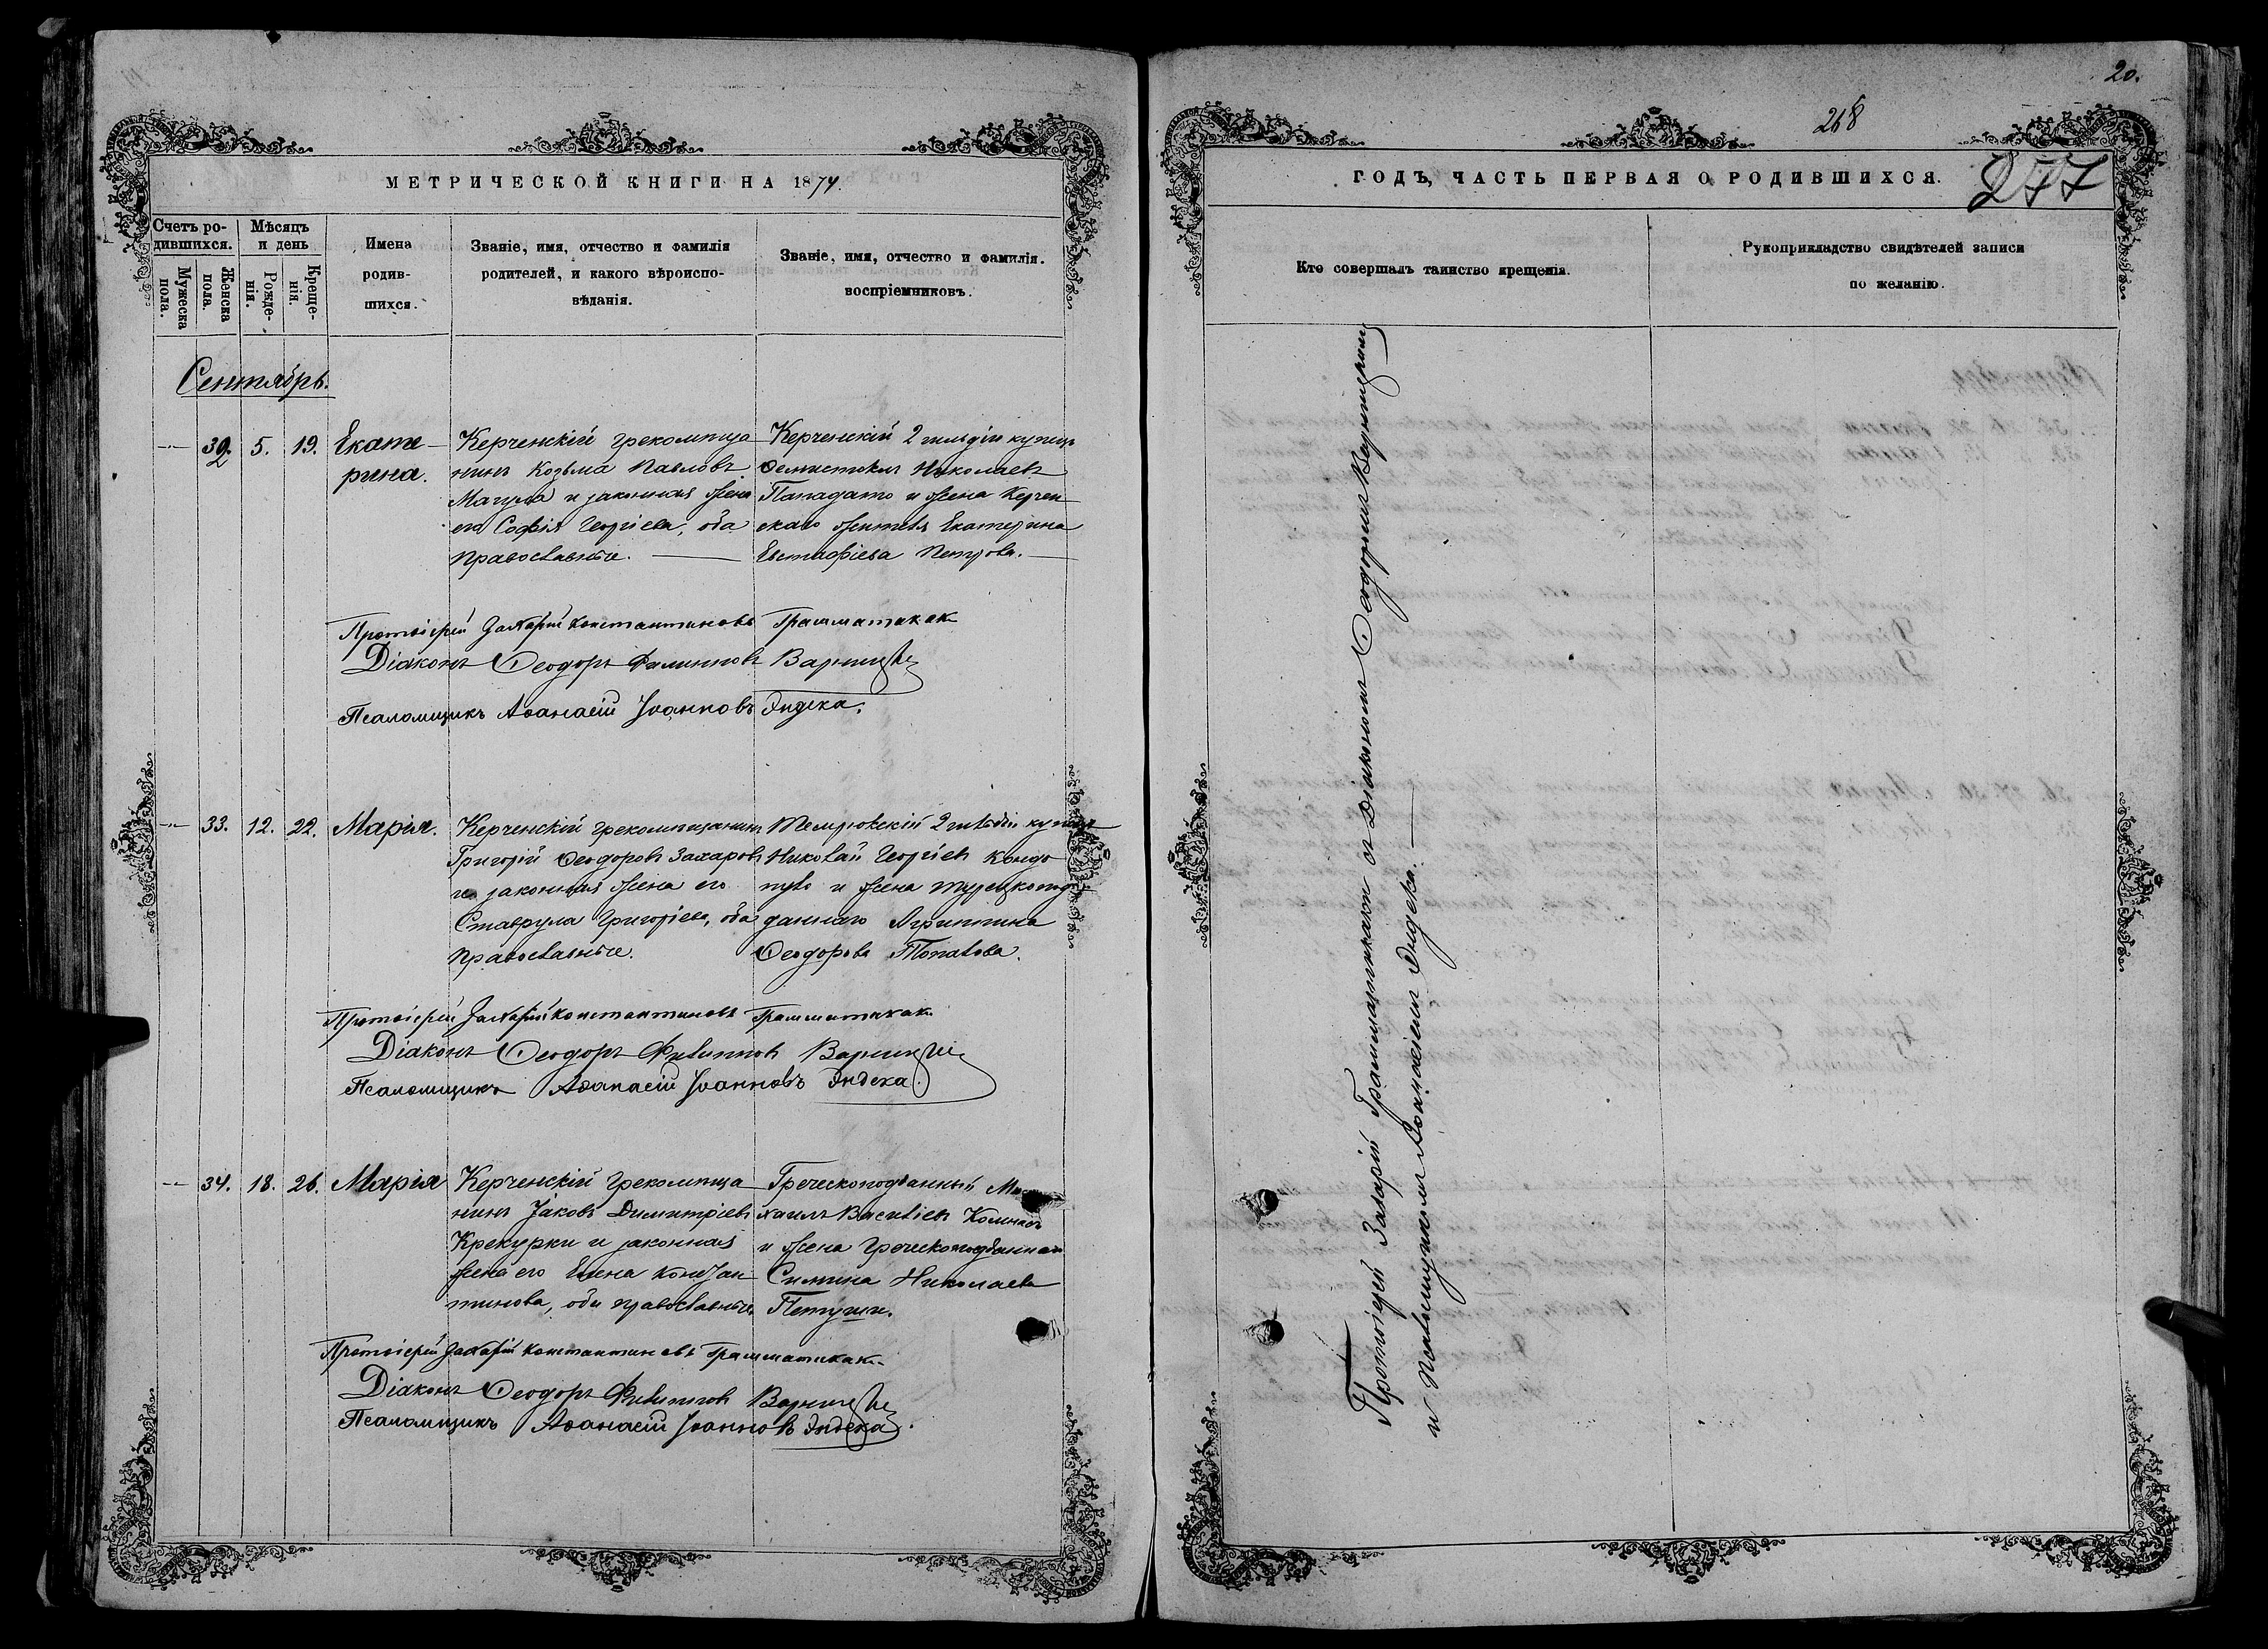 20.
268
277
МЕТРИЧЕСКОЙ КНИГИ НА 1874.
Счетъ родившихся.
Мужеска пола.
Женска пола.
Мѣсяцъ и день
Рожденія.
Крещенія.
Имена родившихся.
Званіе, имя, отчество и фамилія
родителей, и какого вѣроисповѣданія.
Званіе, имя, отчество и фамилія.
воспріемниковъ.
Сентябрь.
32. 5. 19. Екатерина.
Керченскій грекомѣща
нинъ Козьма Павловъ
и законная жена
его Софія Георгіева, оба
православные.
Керченскій 2 гильдіи купецъ
Ѳемистоклъ Николаевъ
Пападато и жена Керчен
скаго жителя Екатерина
Евстафіева Петрова.
Протоіерей Захарій Константиновъ Грамматикаки
Діаконъ Ѳеодоръ Филипповъ
Псаломщикъ Аѳанасій Іоанновъ Эндека.
33. 12. 22. Марія.
Керченскій грекомѣщанинъ
Григорій Ѳеодоровъ Захаровъ
и законная жена его
Ставрула Григоріева, оба
православные.
Темрюкскій 2 гильдіи купецъ
Николай Георгіевъ
и жена турецкопод
даннаго Агриппина
Ѳеодорова
Протоіерей Захарій Константиновъ Грамматикаки
Діаконъ Ѳеодоръ Филипповъ
Псаломщикъ Аѳанасій Іоанновъ Эндека.
34. 18. 26. Марія
Керченскій грекомѣща
нинъ Іаковъ Димитріевъ
Крекурки и законная
жена его Елена Констан
тинова, оба православные
Греческоподданный Ми
хаилъ Васильевъ
и жена греческоподданнаго
Николаева
Протоіерей Захарій Константиновъ Грамматикаки
Діаконъ Ѳеодоръ Филипповъ
Псаломщикъ Аѳанасій Іоанновъ Эндека.
ГОДЪ, ЧАСТЬ ПЕРВАЯ О РОДИВШИХСЯ.
Кто совершалъ таинство крещенія.
Рукоприкладство свидѣтелей записи
по желанію.
Протоіерей Захарій Грамматикаки съ Діакономъ Ѳеодоромъ
и псаломщикомъ Аѳанасіемъ Эндека.